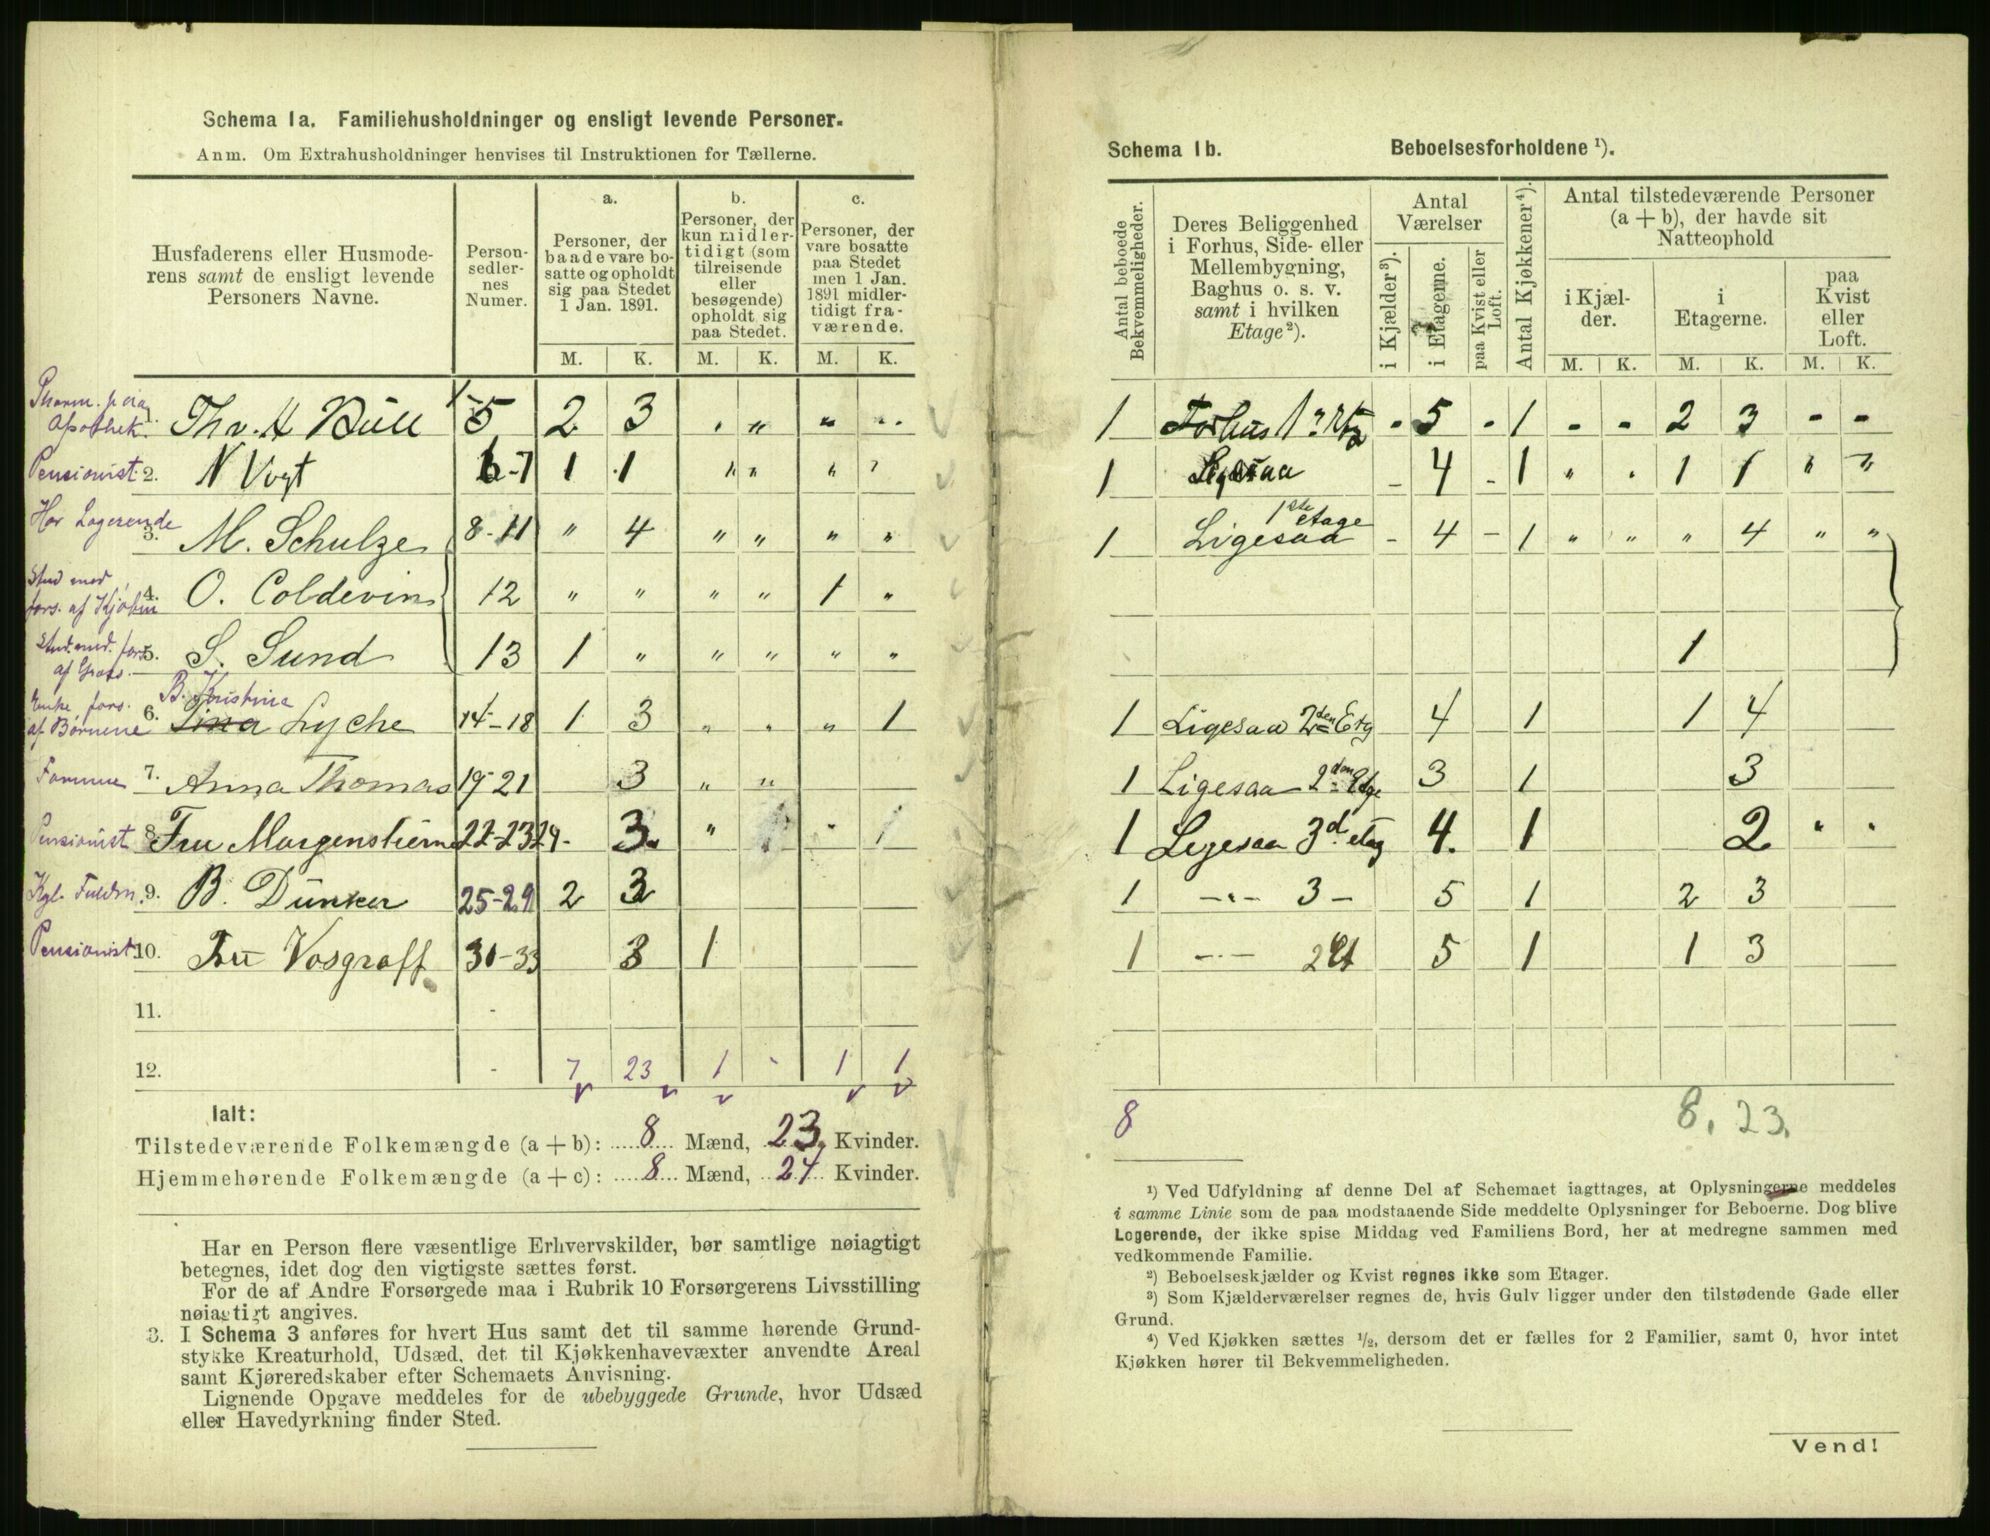 Schema 1a. Familiehusholdninger og ensligt levende Personer.
Anm. Om Extrahusholdninger henvises til Instruktionen for Tællerne.
Husfaderens eller Husmoderens samt de ensligt levende Personers Navne.
Personsedlernes Numer.
a. Personer, der baade vare bosatte og opholdt sig paa Stedet 1 Jan. 1891.
b. Personer, der kun midlertidigt (som tilreisende eller besøgende) opholdt sig paa Stedet.
c. Personer, der vare bosatte paa Stedet men 1 Jan. 1891 midlertidigt fraværende.
M. K. M. K. M. K.
Apothek. 1. Thv. H Bull 1-5 2 3 " " " "
Pensionist 2. N Vogt 6-7 1 1 " " " "
Har Logerende 3. M. Schulze 8-11 " 4 " " " "
Stud med fors. af Kjøbm 4. O. Coldevin 12 " " " " 1 "
Stud. med. fors. af 5. S. Sund 13 1 " " " " "
B. Kristina
Enke fors. af Børnene 6. Lina Lyche 14-18 1 3 " " " 1
7. Anna Thomas 19-21 3 " "
Pensionist 8. Fru Morgenstierne 22-23 24- 3 " " 1
Kgl. Fuldm. 9. B. Dunker 25-29 2 3
Pensionist 10. Fru Vosgraff 30-33 3 1
11. -
12. - 7 23 1 - 1 1
Ialt:
Tilstedeværende Folkemængde (a + b): 8 Mænd, 23 Kvinder.
Hjemmehørende Folkemængde (a + c): 8 Mænd, 24 Kvinder.
Har en Person flere væsentlige Erhvervskilder, bør samtlige nøiagtigt
betegnes, idet dog den vigtigste sættes først.
For de af Andre Forsørgede maa i Rubrik 10 Forsørgerens Livsstilling
nøiagtigt angives.
3. I Schema 3 anføres for hvert Hus samt det til samme hørende Grund-
stykke Kreaturhold, Udsæd, det til Kjøkkenhavevæxter anvendte Areal
samt Kjøreredskaber efter Schemaets Anvisning.
Lignende Opgave meddeles for de ubebyggede Grunde, hvor Udsæd
eller Havedyrkning finder Sted.
Schema 1b. Beboelsesforholdene ¹).
Antal beboede Bekvemmeligheder.
Deres Beliggenhed i Forhus, Side- eller Mellembygning, Baghus o. s. v. samt i hvilken Etage ²).
Antal Værelser
i Kjælder ³).
i Etagerne.
paa Kvist eller Loft.
Antal Kjøkkener ⁴).
Antal tilstedeværende Personer (a + b), der havde sit Natteophold
i Kjælder.
i Etagerne.
paa Kvist eller Loft.
M. K. M. K. M. K.
1 Forhus 1 - 5 - 1 - - 2 3 - -
1 Ligesaa 4 - 1 " " 1 1 " "
1 Ligesaa 1ste etage - 4 - 1 " " " 4 " "
1
1 Ligesaa 2den Etg 4 1 1 4
1 Ligesaa 2den Etge 3 1 3
1 Ligesaa 3d. etag 4. 1 2 " "
1 -"- 3 - 5 1 2 3
1 -"- 2 Et 5 1 1 3
8 8. 23.
¹) Ved Udfyldning af denne Del af Schemaet iagttages, at Oplysningerne meddeles
i samme Linie som de paa modstaaende Side meddelte Oplysninger for Beboerne. Dog blive
Logerende, der ikke spise Middag ved Familiens Bord, her at medregne sammen med
vedkommende Familie.
²) Beboelseskjælder og Kvist regnes ikke som Etager.
³) Som Kjælderværelser regnes de, hvis Gulv ligger under den tilstødende Gade eller
Grund.
⁴) Ved Kjøkken sættes ½, dersom det er fælles for 2 Familier, samt 0, hvor intet
Kjøkken hører til Bekvemmeligheden.
Vend!